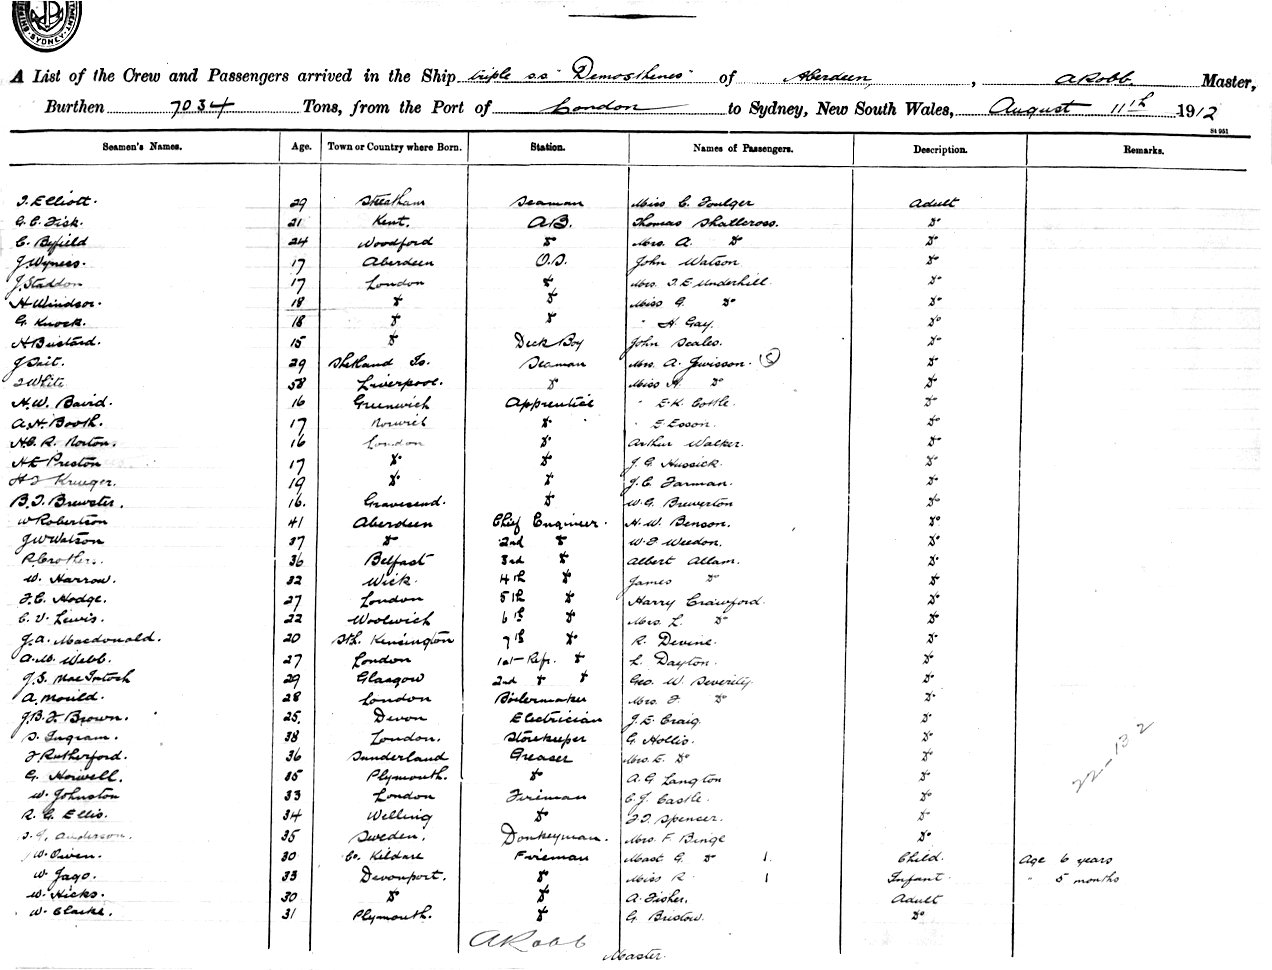 SYDNEY.
A List of the Crew and Passengers arrived in the Ship triple s.s "Demosthenes" of Aberdeen, , A Robb. Master,
Burthen 7034 Tons, from the Port of London to Sydney, New South Wales, August 11th 1912
St 951
Seamen's Names. Age. Town or Country where Born. Station. Names of Passengers. Description. Remarks.
Elliott. 29 Streatham Seaman Miss C. Foulger Adult
G. C. Fisk. 21 Kent. A.B. Thomas Shallcross. Do
C. Byfield 24 Woodford Do Mrs. A. Do Do
J. Wyness. 17 Aberdeen O.S. John Watson Do
J. Staddon 17 London Do Mrs. I. E Underhill. Do
H Windsor. 18 Do Do Miss G. Do Do
G. Knock. 18 Do Do " H. Gay. Do
H Bustard. 15 Do Deck Boy John Scales. Do
J 29 Shetland Is. Seaman Mrs. A. (5) Do
White 58 Liverpool. Do Miss H. Do Do
H. W. David. 16 Greenwich Apprentice " E. K. Cottle. Do
A. H. Booth. 17 Norwich Do " E Esson. Do
H. C. R. Norton. 16 London Do Arthur Walker. Do
H E Preston 17 Do Do J. G. Hussick. Do
Krueger. 19 Do Do J. C. Farman. Do
B. I. Brewster. 16. Gravesend. Do W. G. Brewerton Do
W Robertson 41 Aberdeen Chief Engineer. H. W. Benson. Do
J W Watson 37 Do 2nd Do W. F Weedon. Do
R Crothers. 36 Belfast 3rd Do Albert Allam. Do
W. Harrow. 32 Wick. 4th Do James Do Do
F. C. Hodge. 27 London 5th Do Harry Crawford. Do
C. V. Lewis. 22 Woolwich 6th Do Mrs. L. Do Do
J. A. Macdonald. 20 Sth. Kensington 7th Do R. Devine. Do
A. M. Webb. 27 London 1st Refr. Do L. Dayton. Do
J. S. MacIntosh 29 Glasgow 2nd Do Do Geo. W. Severity. Do
A. Mould. 28 London Boilermaker Mrs. F. Do Do
J. B. F. Brown. 25. Devon Electrician J. E. Craig. Do
S. Ingram. 38 London. Storekeeper G. Hollis. Do
F Rutherford. 36 Sunderland Greaser Mrs. E. Do Do
G. Horwell. 35 Plymouth. Do A. G Langton Do
W. Johnston 33 London Fireman C. J. Castle. Do
R. G. Ellis. 34 Welling Do Spencer. Do
Anderson. 35 Sweden. Donkeyman. Mrs. F. Binge Do
W. Owen. 30 Co. Kildare Fireman Mast G. Do 1. Child. Age 6 years
W. Jago. 33 Devonport. Do Miss R. 1 Infant. " 5 months
W. Hicks. 30 Do Do A. Fisher. Adult
W. Clarke. 31 Plymouth. Do G. Bristow. Do
22-132
A Robb
Master.